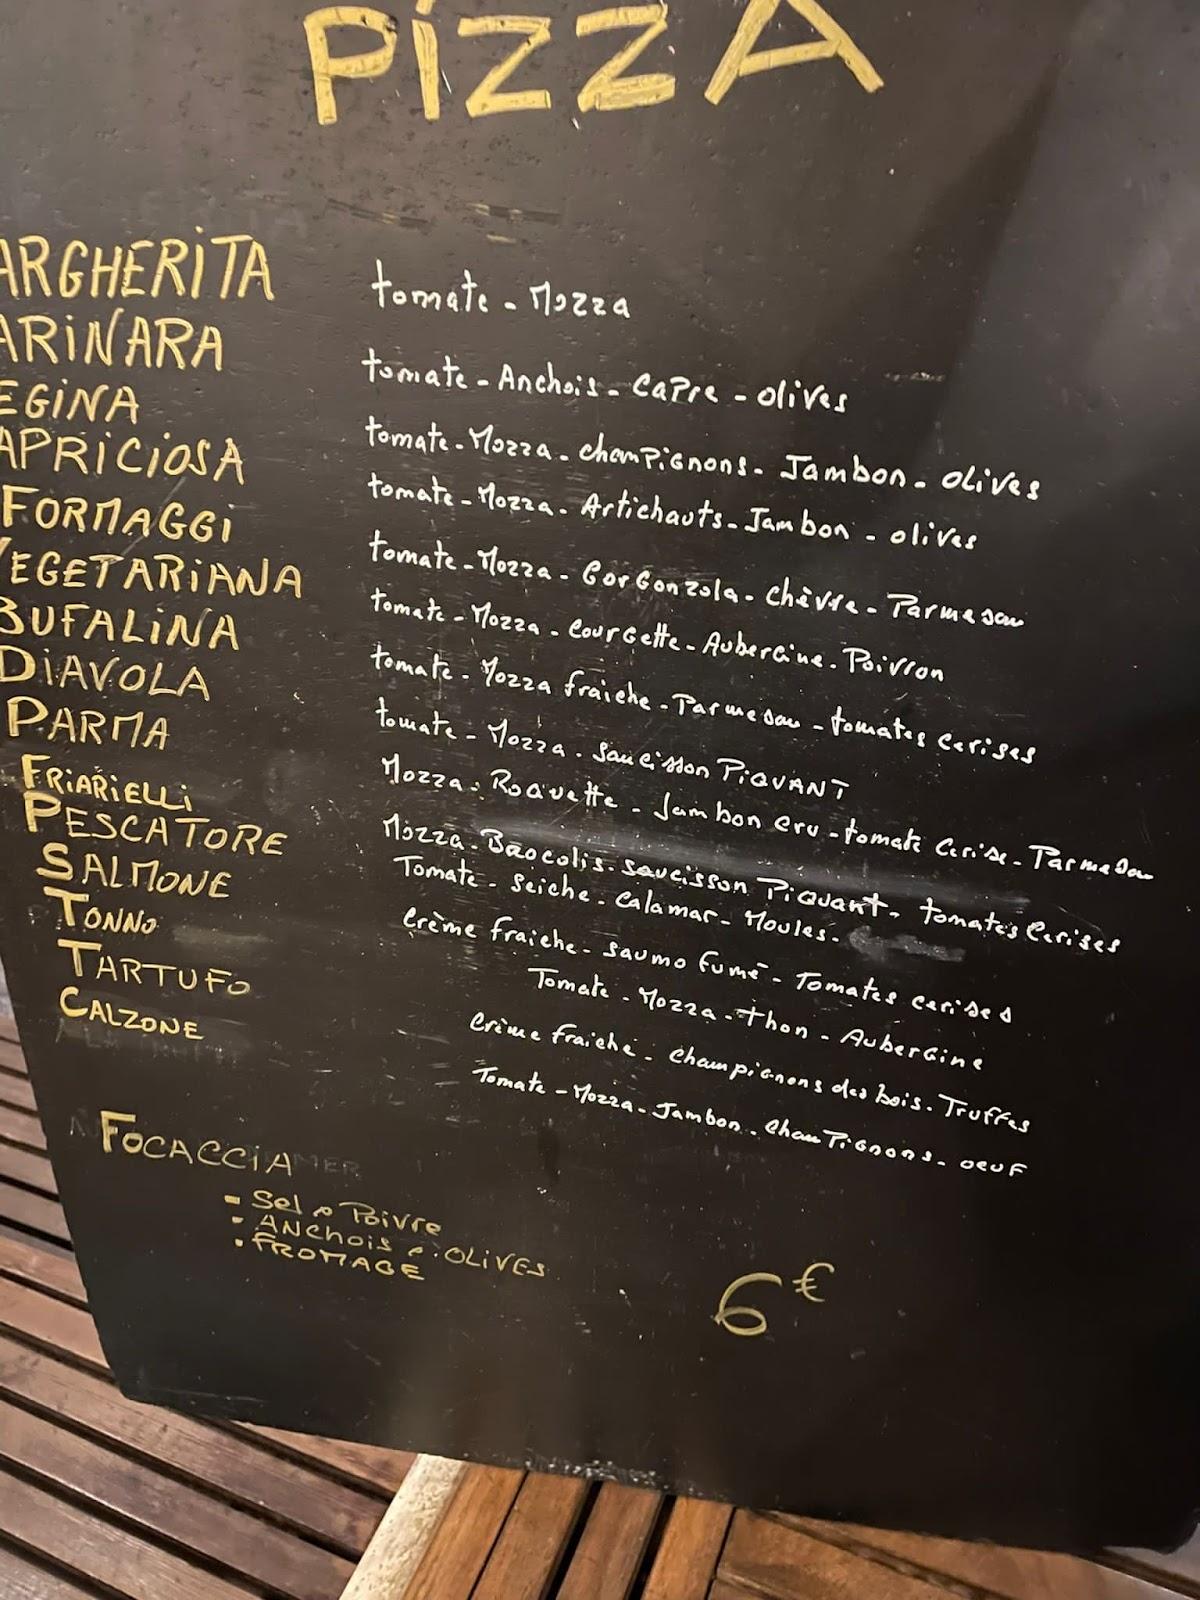 PiZZA
ARGHERITA tomate - Mozza
ARINARA tomate - Anchois - Capre - olives
EGINA tomate - Mozza - champignons - Jambon - olives
APRICIOSA tomate - Mozza - Artichauts - Jambon - olives
FORMAGGI tomate - Mozza - Gorgonzola - chèvre - Parmesan
VEGETARIANA tomate - Mozza - Courgette - Aubergine - Poivron
BUFALINA tomate - Mozza fraiche - Parmesan - tomates cerises
DIAVOLA tomate - Mozza - saucisson PiQUANT
PARMA Mozza - Roquette - Jambon cru - tomate cerise - Parmesan
FRIARIELLI Mozza - Brocolis - saucisson Piquant - tomates cerises
PESCATORE Tomate - seiche - calamar - Moules -
SALMONE Crème fraiche - saumo fumé - Tomates cerises
TONNO Tomate - Mozza - thon - Aubergine
TARTUFO Crème fraiche - champignons des bois - Truffes
CALZONE Tomate - Mozza - Jambon - champignons - oeuf
FOCACCIA
- Sel Poivre
- ANCHOIS OLIVES
- FROMAGE
6€